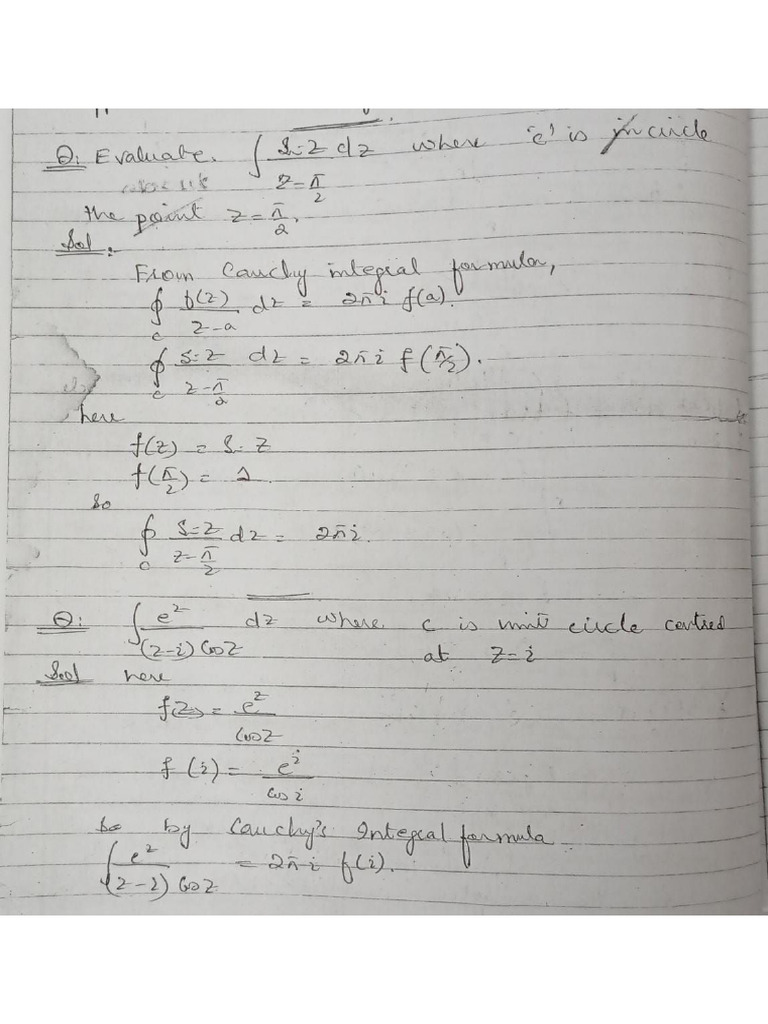 Q: Evaluate. ∫ sin z dz / z - π/2 where 'c' is circle
the point z = π/2.
Sol:
From Cauchy integral formula,
∮c f(z) / z-a dz = 2πi f(a).
∮c sin z / z - π/2 dz = 2πi f(π/2).
here
f(z) = sin z
f(π/2) = 1
So
∮c sin z / z - π/2 dz = 2πi.
Q: ∫ e^z / (z-i) cos z dz where c is unit circle centred
at z=i
Sol here
f(z) = e^z / cos z
f(i) = e^i / cos i
So by Cauchy's Integral formula
∫ e^z / (z-i) cos z = 2πi f(i).